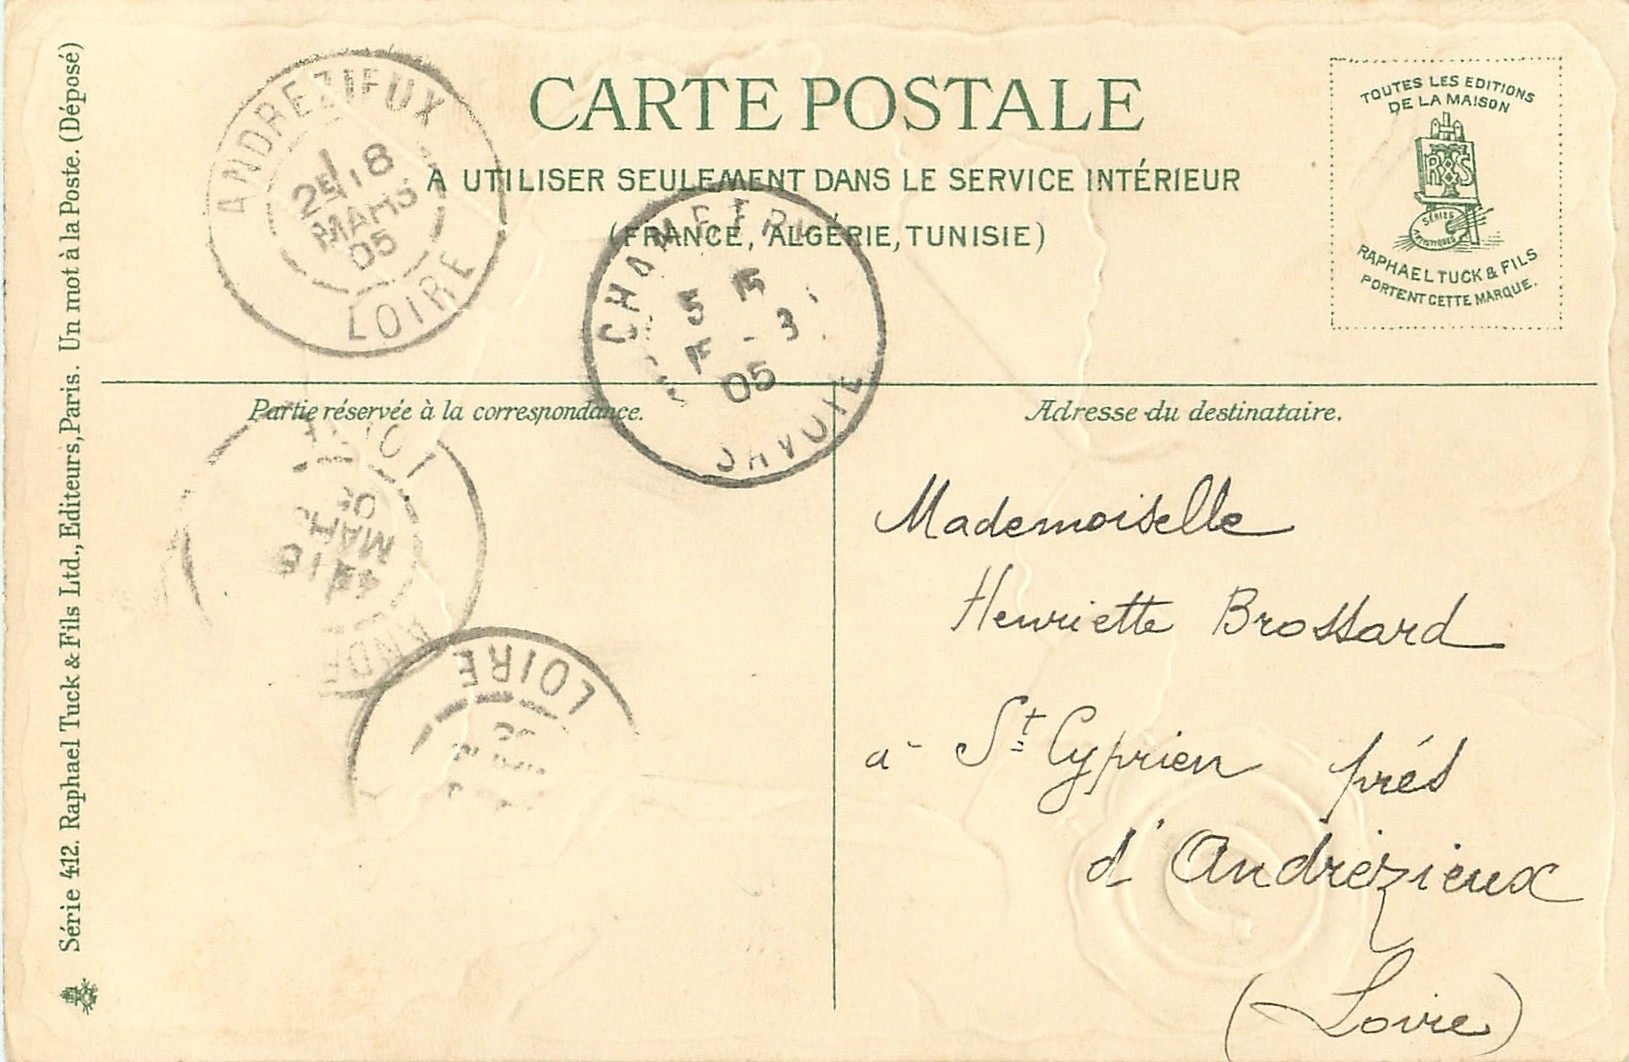 CARTE POSTALE
A UTILISER SEULEMENT DANS LE SERVICE INTÉRIEUR
(FRANCE, ALGÉRIE, TUNISIE)
TOUTES LES EDITIONS
DE LA MAISON
SÉRIES
ARTISTIQUES
RAPHAEL TUCK & FILS
PORTENT CETTE MARQUE.
ANDREZIEUX
MARS
05
LOIRE
5 15
15 - 3
05
SAVOIE
Partie réservée à la correspondance.
Adresse du destinataire.
Mademoiselle
Henriette Brossard
à St Cyprien prés
d'Andrézieux
(Loire)
LOIRE
Série 412. Raphael Tuck & Fils Ltd., Editeurs, Paris. Un mot à la Poste. (Déposé)